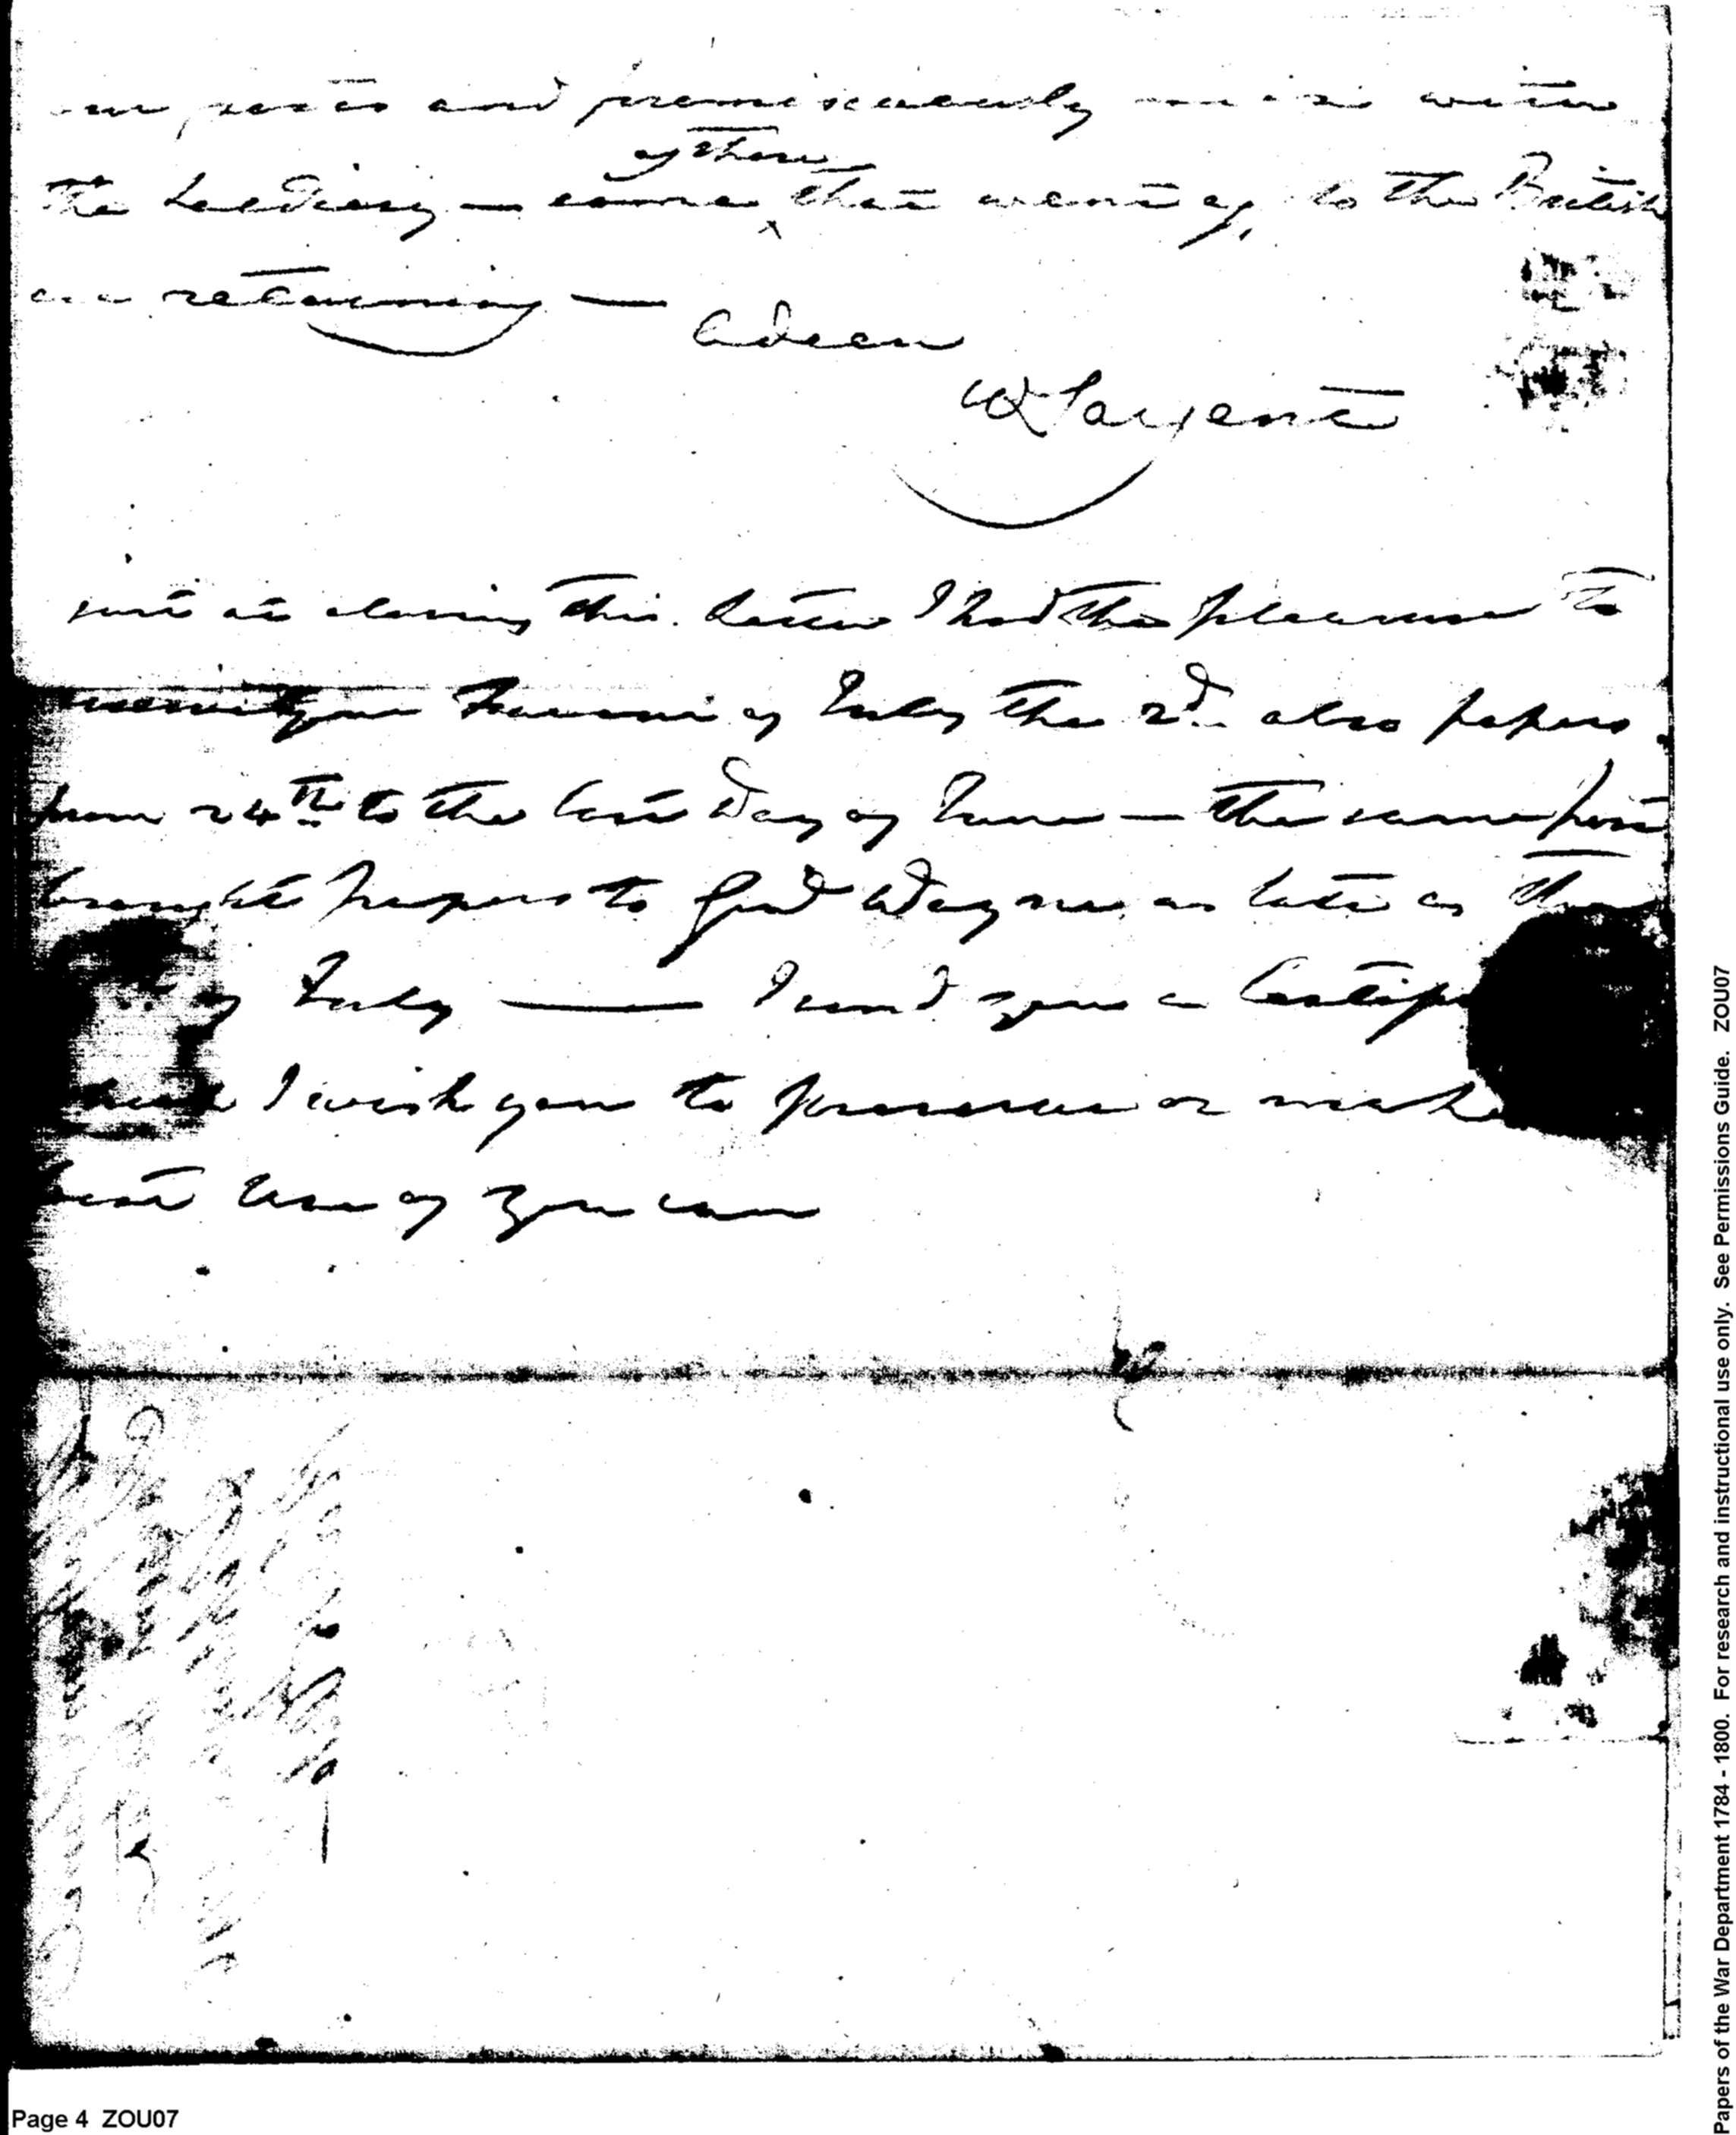 our posts and promiscuously mix with
of those
the Soldiery — some that went off to the British
are returning —
Adieu
W Sargent
just at closing this Letter I had the pleasure to
receive your Favour of July the 2d. also papers
from 24th to the last Day of June — the same post
brought papers to Genl Wayne as late as the
of July — I send you a Certif
which I wish you to preserve or make
best Use of you can
Page 4 ZOU07
Papers of the War Department 1784 - 1800. For research and instructional use only. See Permissions Guide. ZOU07